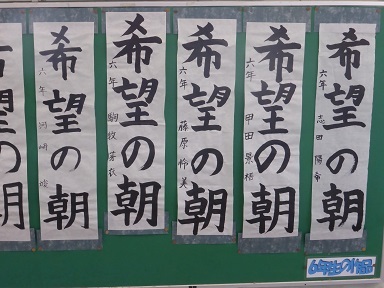 希望の朝
六年 志田陽希
希望の朝
六年 甲田景梧
希望の朝
六年 藤原怜美
希望の朝
六年 駒牧芽衣
希望の朝
六年 河﨑
望の朝
6年生の作品